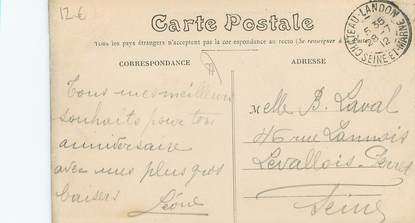 12 €
Carte Postale
Tous les pays étrangers n'acceptent pas la correspondance au recto (Se renseigner à
CORRESPONDANCE
ADRESSE
CHATEAU-LANDON
SEINE-ET-MARNE
Tous mes meilleurs
souhaits pour ton
anniversaire
avec mes plus gros
baisers
Léone
Melle B. Laval
46 rue Lannois
Levallois-Perret
Seine